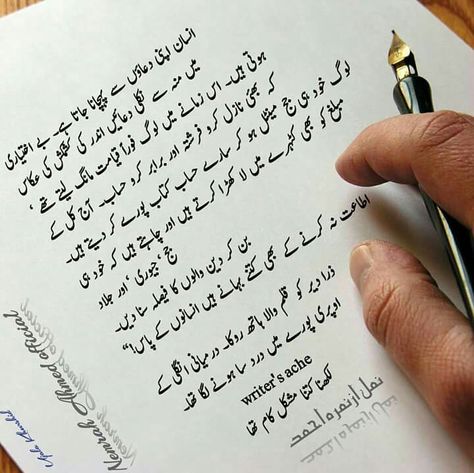 انسان اپنی دعاؤں سے پہچانا جاتا ہے۔ بے اختیاری
میں منہ سے نکلی دعائیں اندر کی کشمکش کی عکاس
ہوتی ہیں۔ اس زمانے میں لوگ فوراً قیامت مانگ لیتے تھے،
کہ بھئی نازل کرو فرشتہ اور برابر کرو حساب۔ آج کل کے
لوگ خود ہی جج مینٹل ہو کر سارے حساب کتاب پورے کر دیتے ہیں۔
مبلغ کو بھی کٹہرے میں لا کھڑا کرتے ہیں اور چاہتے ہیں کہ خود ہی
جج، جیوری، اور جلاد
بن کر دین والوں کا فیصلہ سنا دیں۔
اطاعت نہ کرنے کے بھی کتنے بہانے ہیں انسانوں کے پاس!"
ذرا دیر کو قلم والا ہاتھ روکا۔ درمیانی انگلی کے
اوپری پورے میں درد سا ہونے لگا تھا۔
writer's ache
لکھنا کتنا مشکل کام تھا
نمل از نمرہ احمد
Nemrah Ahmed official